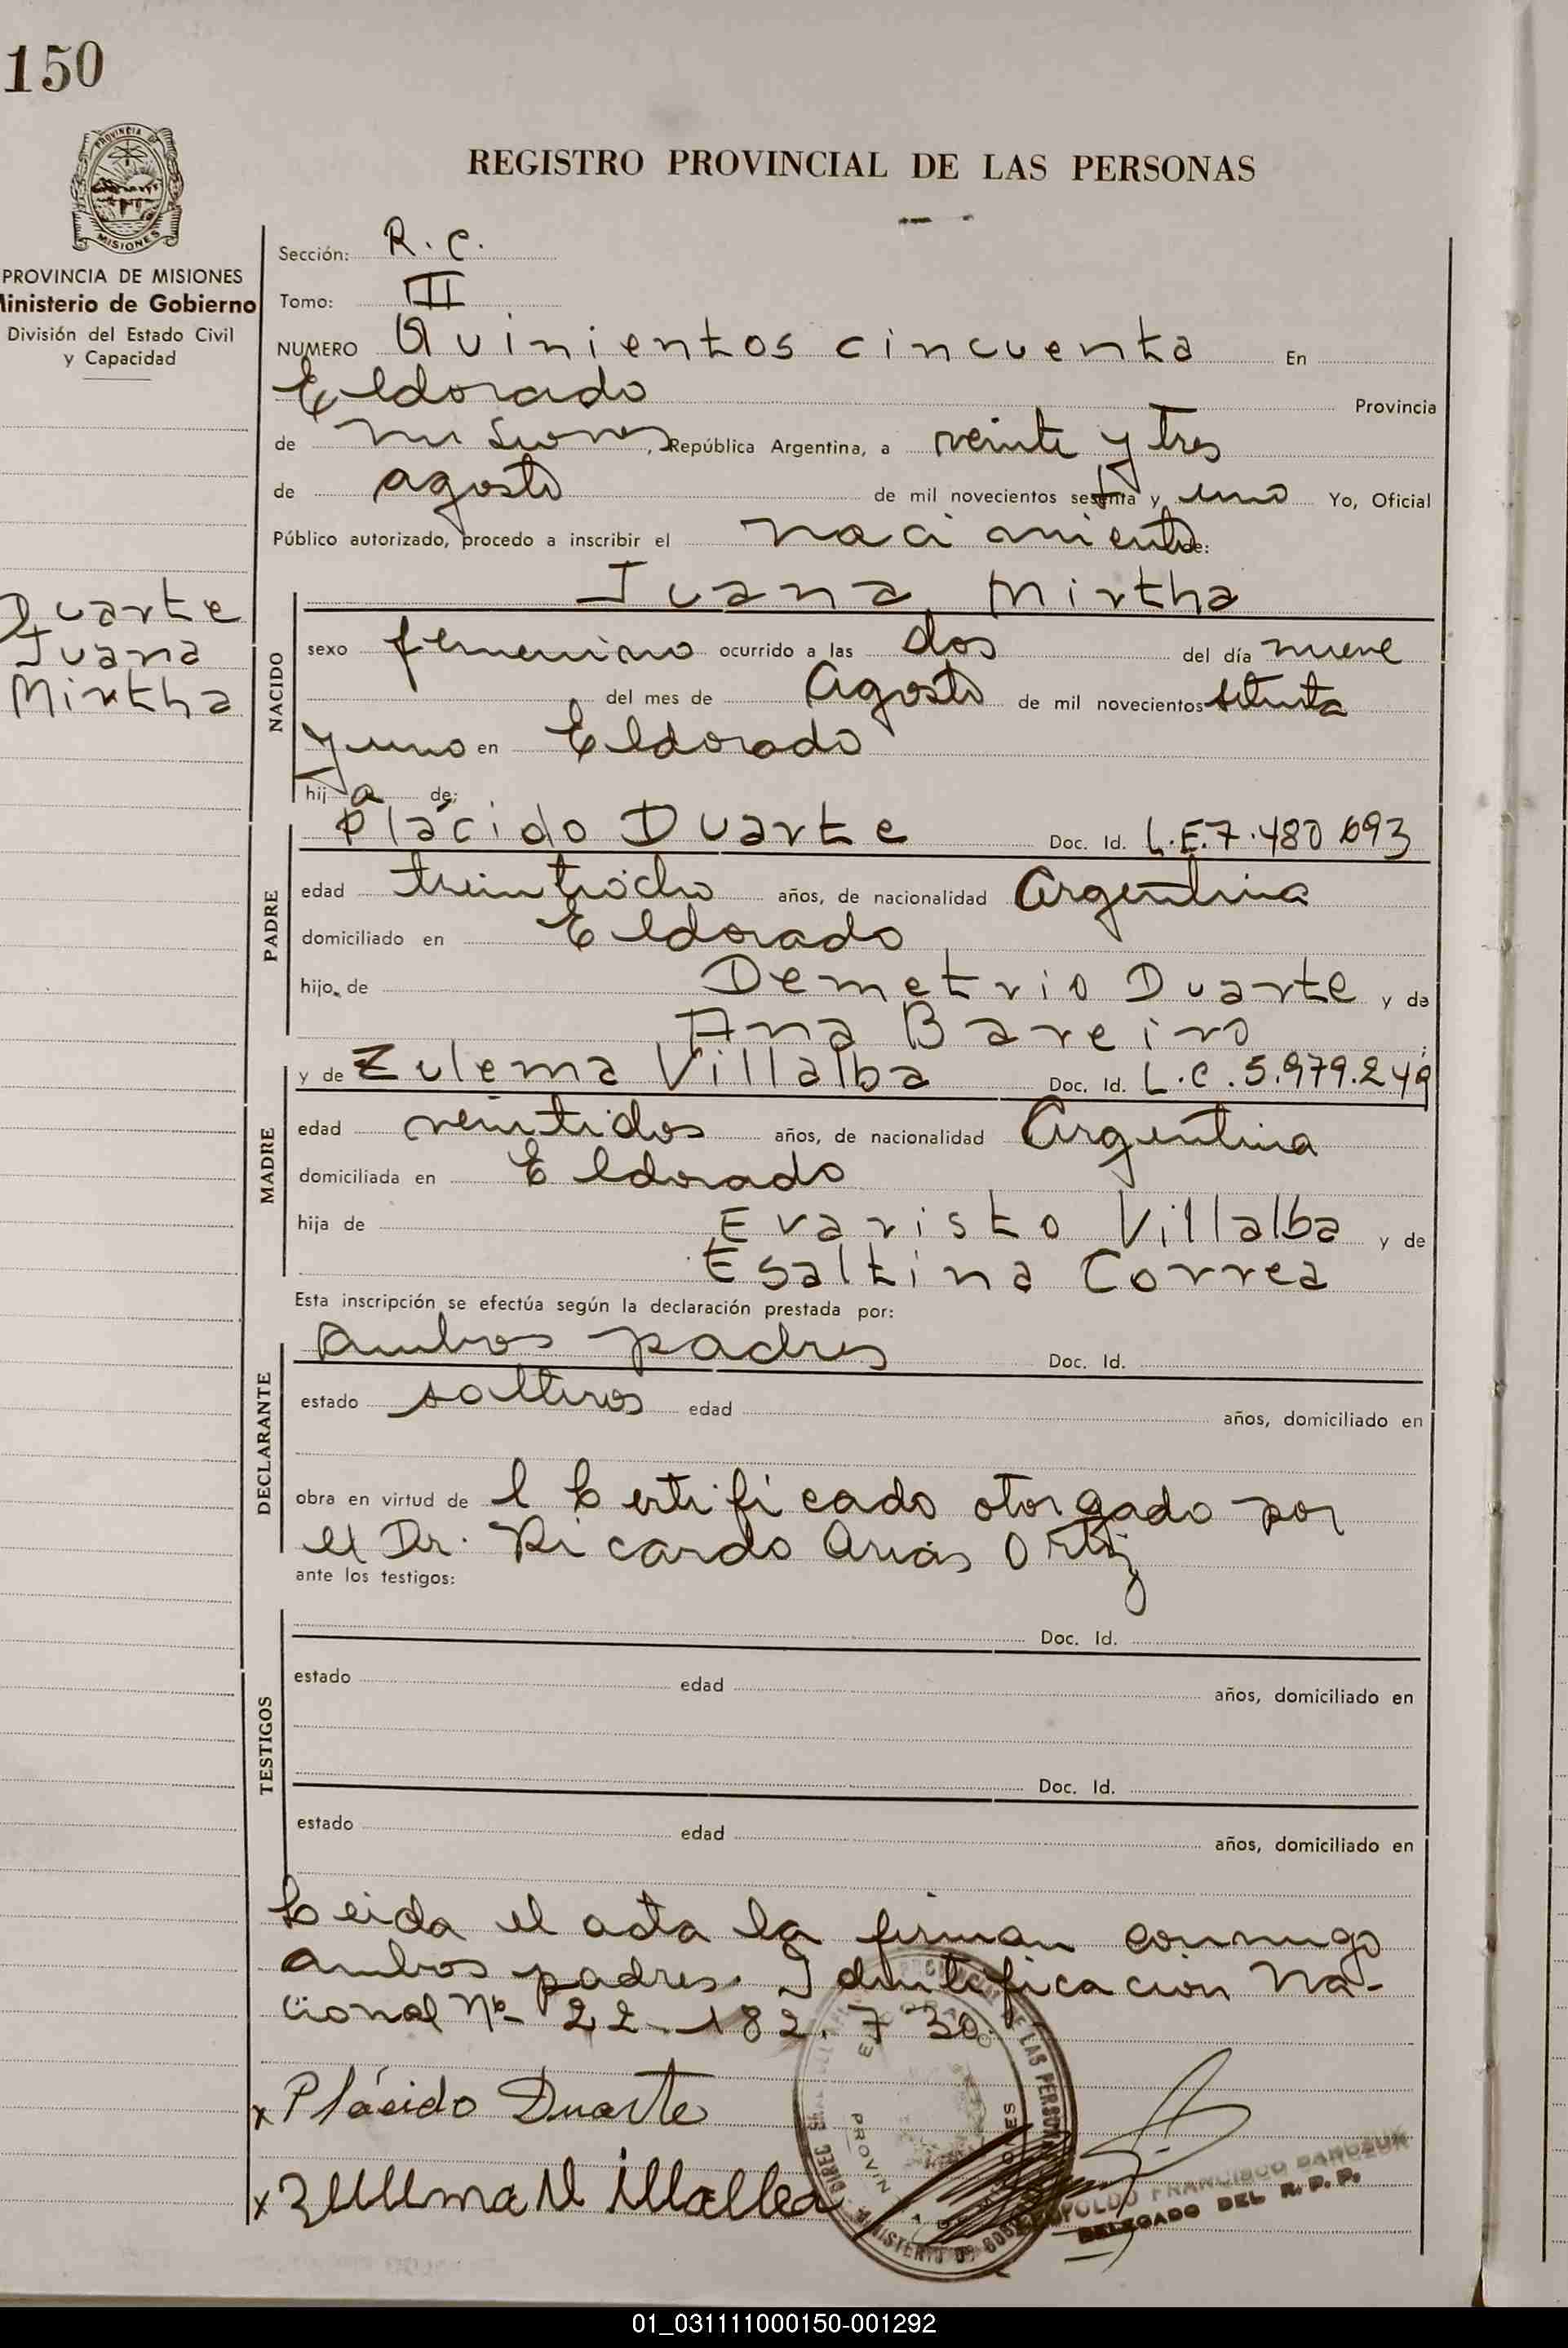 150
PROVINCIA DE
MISIONES
PROVINCIA DE MISIONES
Ministerio de Gobierno
División del Estado Civil
y Capacidad
REGISTRO PROVINCIAL DE LAS PERSONAS
Sección: R. C.
Tomo: II
NUMERO Quinientos cincuenta En
Eldorado Provincia
de misiones, República Argentina, a veinte y tres
de agosto de mil novecientos setenta y uno Yo, Oficial
Público autorizado, procedo a inscribir el nacimiento de:
Duarte
Juana
Mirtha
NACIDO
Juana Mirtha
sexo femenino ocurrido a las dos del día nueve
del mes de Agosto de mil novecientos setenta
y uno en Eldorado
hija de:
PADRE
Plácido Duarte Doc. Id. L.E.7.480.693
edad treintiocho años, de nacionalidad Argentina
domiciliado en Eldorado
hijo de Demetrio Duarte y de
Ana Bareiro
MADRE
y de Zulema Villalba Doc. Id. L.C.5.979.249
edad veintidos años, de nacionalidad Argentina
domiciliada en Eldorado
hija de Evaristo Villalba y de
Esaltina Correa
Esta inscripción se efectúa según la declaración prestada por:
DECLARANTE
Ambos padres Doc. Id.
estado solteros edad años, domiciliado en
obra en virtud de l Certificado otorgado por
el Dr. Ricardo Arias Ortiz
ante los testigos:
TESTIGOS
Doc. Id.
estado edad años, domiciliado en
Doc. Id.
estado edad años, domiciliado en
Leida el acta la firman conmigo
ambos padres. Identificacion Na-
cional Nº 22.182.730
x Plácido Duarte
x Zulema Villalba
FRANCISCO
DELEGADO DEL R.P.P.
01_031111000150-001292